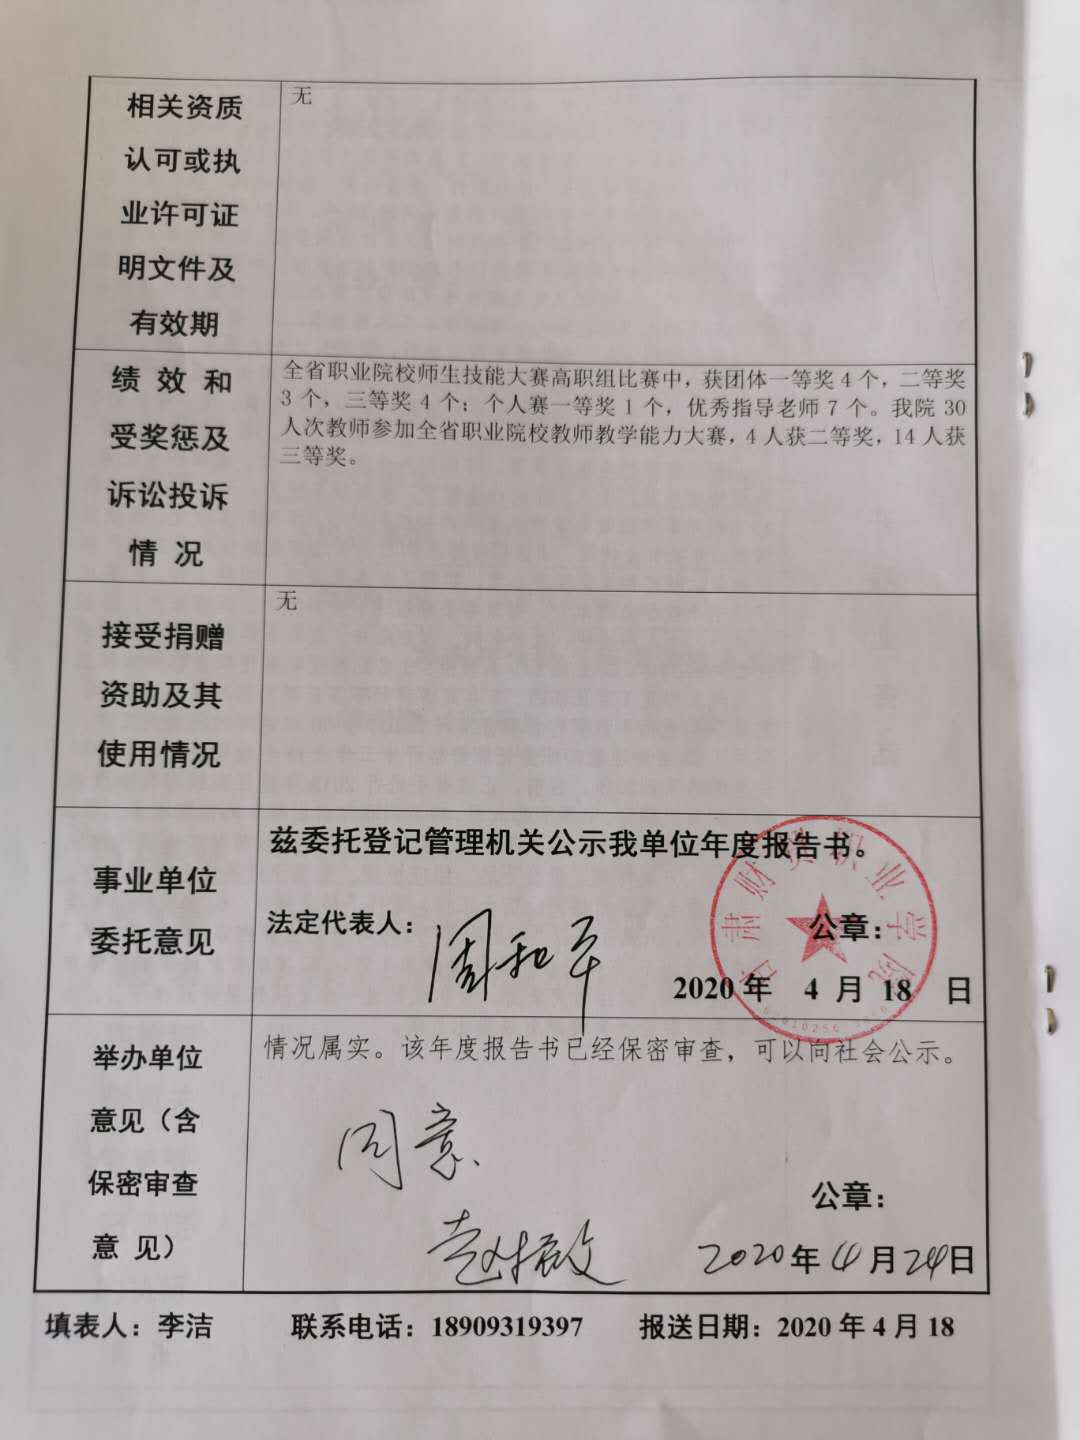 相关资质
认可或执
业许可证
明文件及
有效期
无
绩 效 和
受奖惩及
诉讼投诉
情 况
全省职业院校师生技能大赛高职组比赛中，获团体一等奖 4 个，二等奖
3 个，三等奖 4 个；个人赛一等奖 1 个，优秀指导老师 7 个。我院 30
人次教师参加全省职业院校教师教学能力大赛，4 人获二等奖，14 人获
三等奖。
接受捐赠
资助及其
使用情况
无
事业单位
委托意见
兹委托登记管理机关公示我单位年度报告书。
法定代表人：周和平 公章：
2020 年 4 月 18 日
甘肃财贸职业学院
举办单位
意见（含
保密审查
意 见）
情况属实。该年度报告书已经保密审查，可以向社会公示。
同意
公章：
2020年4月24日
填表人：李洁 联系电话：18909319397 报送日期：2020 年 4 月 18